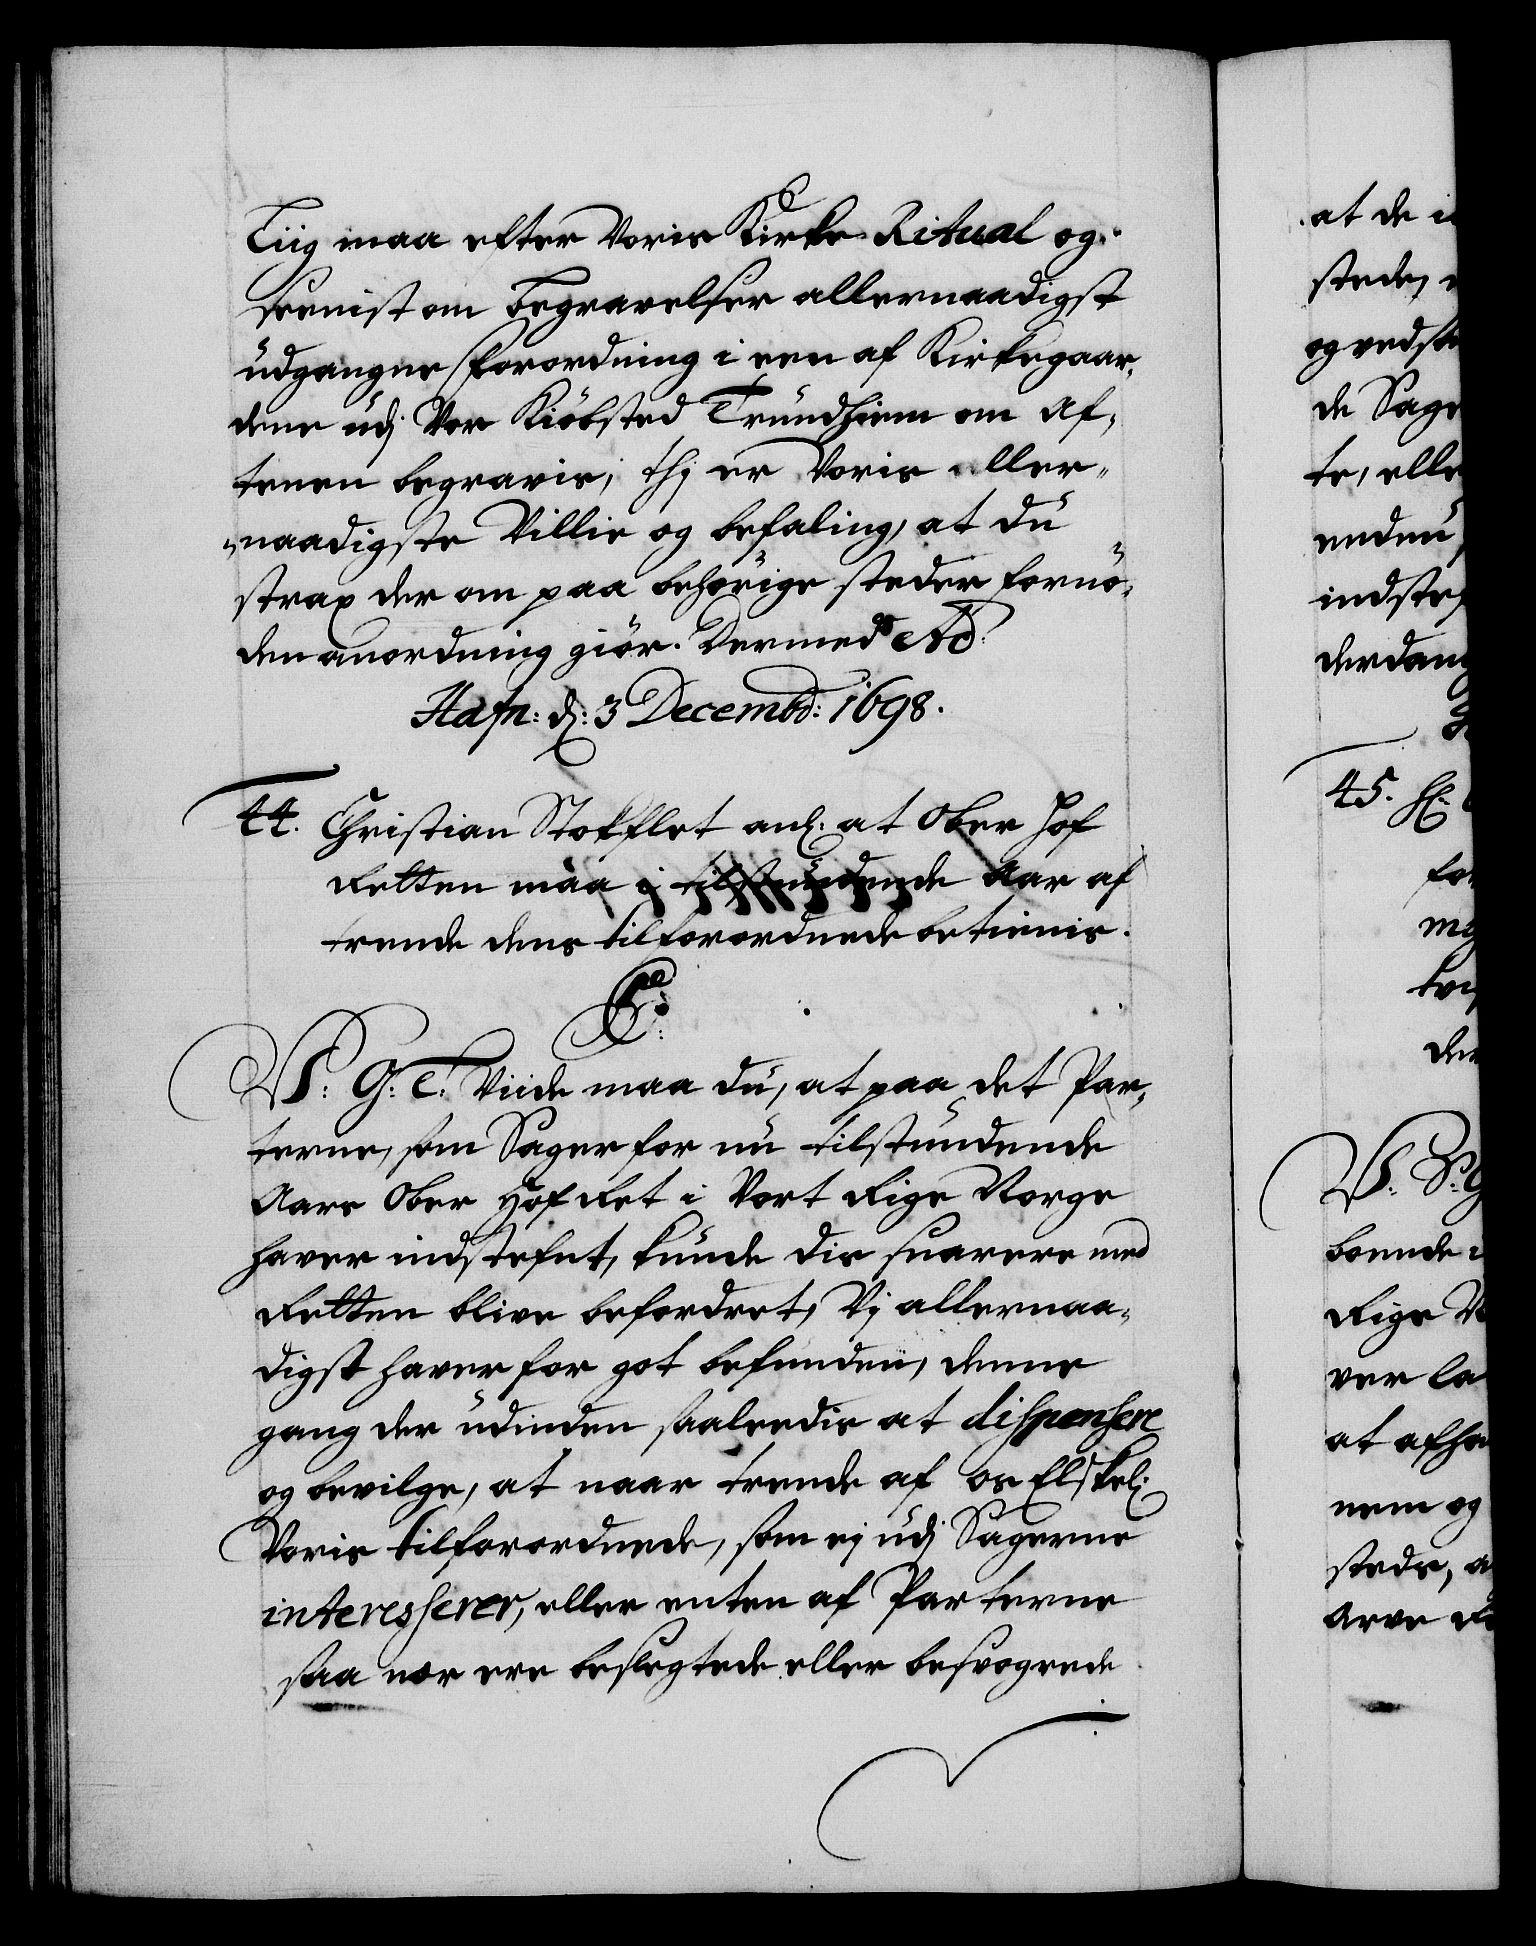 Liig maa efter Voris Kirke Ritual og
seenist om Begravelser allernaadigst
udgangne forordning i een af Kirkegaar-
dene udj Vor Kiöbsted Trundhiem om Af-
tenen begravis, thj er Voris aller-
naadigste Villie og befaling, at du
strax der om paa behörige steder fornö-
den anordning giör. Dermed
Hafn: d: 3 Decembr: 1698.
44. Christian Stokflet anl: at Ober Hof
Retten maa i tilstundende Aar af
trende dens tilforordnede betienis.
C5
V: G: T: Viide maa du, at paa det Par-
terne, som Sager for nu tilstundende
Aars Ober Hof Ret i Vort Rige Norge
haver indstefnt, kunde dis snarere med
Retten blive befordret, Vj allernaa-
digst haver for got befunden, denne
gang der udinden saaleedis at dispensere
og bevilge, at naar trende af os Elskel:
Voris tilforordnede, som ej udj Sagerne
interesserer, eller enten af Parterne
saa nær ere beslegtede eller besvogrede
at de
stede,
og vedst
de Sage
te, elle
endnu
indste
derdan
45. H:
for
my
tvi
den
V: S: G
boende
Rige
ver la
at afha
nem og
steds,
Arve